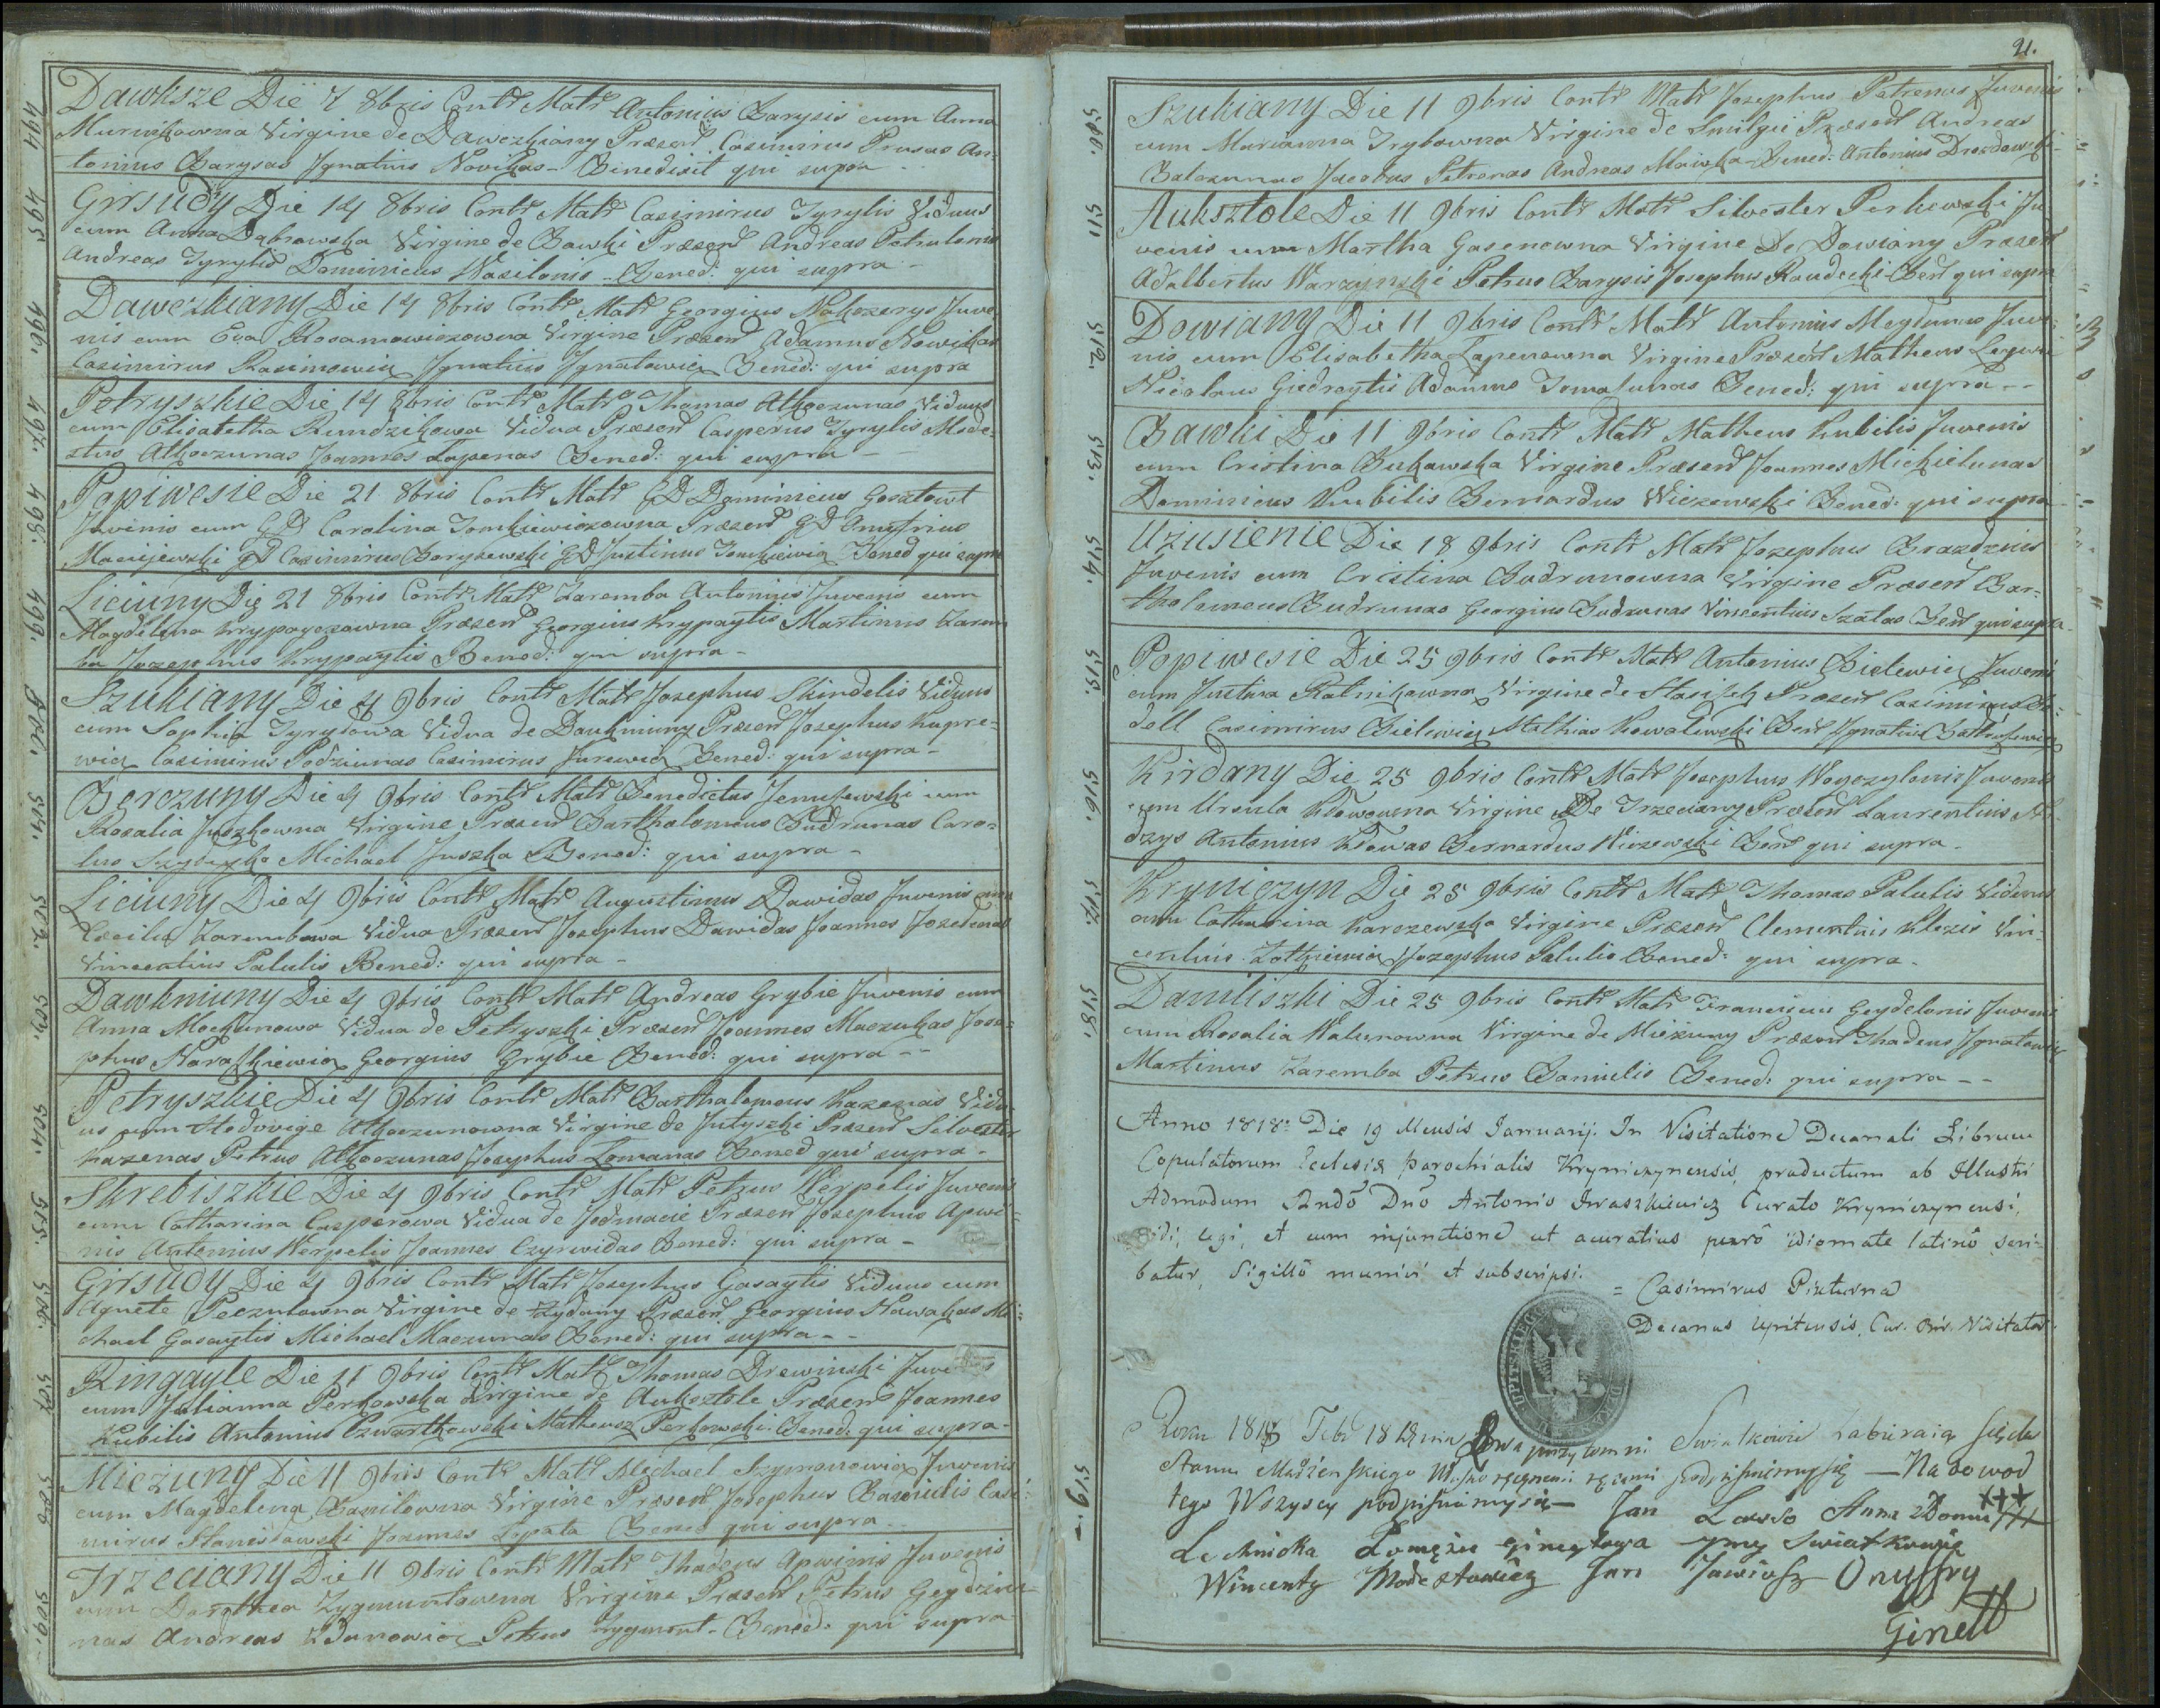 494.
Dawksze Die 7 8bris Contr Matr Antonius Barysis cum Anna
Murnikowna Virgine de Dawczkiany Præsen Casimirus Prusas An-
tonius Barysas Ignatius Novikas - Benedixit qui supra
495
Girsudy Die 14 8bris Contr Matr Casimirus Tyrylis Viduus
cum Anna Dąbrowska Virgine de Bawki Præsen Andreas Petrulonis
Andreas Tyrylis Dominicus Wasilonis - Bened: qui supra -
496.
Dawczkiany Die 14 8bris Contr Matr Georgius Juve
nis cum Eva Rosamowiczowna Virgine Præsen Adamus Nowikas
Casimirus Rasimowicz Ignatius Ignatowicz Bened: qui supra
497.
Petryszkie Die 14 8bris Contr Matr Thomas Atkoczunas Viduus
cum Elisabetha Rundzikowa Vidua Præsen Casperus Tyrylis Mode-
stus Atkoczunas Joannes Łapenas Bened: qui supra -
498.
Popiwesie Die 21 8bris Contr Matr GD Dominicus Gosztowt
Juvenis cum GD Carolina Jonkiewiczowna Præsen GD
Maciejewski GD Casimirus Boryszewski GD Justinus Jonkiewicz Bened qui supra
499.
Liciuny Die 21 8bris Contr Matr Zaremba Antonius Juvenis cum
Magdelena Præsen Georgius Krypaytis Martinus Zarem
ba Josephus Krypaytis Bened: qui supra -
500.
Szukiany Die 4 9bris Contr Matr Josephus Skindelis Viduus
cum Sophia Tyrylowa Vidua de Daukniuny Præsen Josephus Kupre-
wicz Casimirus Podziunas Casimirus Jurewicz Bened: qui supra -
501.
Berczuny Die 4 9bris Contr Matr Benedictus cum
Rosalia Juszkowna Virgine Præsen Bartholomeus Budrunas Caro-
lus Michael Juszka Bened: qui supra -
502.
Liciuny Die 4 9bris Contr Matr Augustinus Dawidas Juvenis cum
Cæcilia Zarembowa Vidua Præsen Josephus Dawidas Joannes
Vincentius Palulis Bened: qui supra -
503.
Dawkniuny Die 4 9bris Contr Matr Andreas Grybie Juvenis cum
Anna Mockunowa Vidua de Petryszki Præsen Joannes Maczukas Jose-
phus Naraszkiewicz Georgius Grybie Bened: qui supra --
504.
Petryszkie Die 4 9bris Contr Matr Bartholomeus Kazenas Vidu-
us cum Hedwige Atkoczunowna Virgine de Jutyszki Præsen Silvester
Kazenas Petrus Atkoczunas Josephus Zomanas Bened qui supra -
505.
Skrebiszkie Die 4 9bris Contr Matr Petrus Werpelis Juvenis
cum Catharina Casperowa Vidua de Præsen Josephus Apwi-
nis Antonius Werpelis Joannes Czyrwidas Bened: qui supra -
506.
Girsudy Die 4 9bris Contr Matr Josephus Gasaytis Viduus cum
Agnete Virgine de Præsen Georgius Nawakas Mi-
chael Gasaytis Michael Maczunas Bened: qui supra --
507
Ringayle Die 11 9bris Contr Matr Thomas Drewinski Juvenis
cum Julianna Perkowska Virgine de Auksztole Præsen Joannes
Kubilis Antonius Czwartkowski Matheusz Perkowski Bened: qui supra -
508
Mieżuny Die 11 9bris Contr Matr Michael Szymanowicz Juvenis
cum Magdelena Virgine Præsen Josephus Casi-
mirus Stanisławski Joannes Łopata Bened qui supra
509.
Trzeciany Die 11 9bris Contr Matr Thadeus Apwinis Juvenis
cum Dorothea Zygmuntowna Virgine Præsen Petrus Geydziu-
nas Andreas Zdanowicz Petrus Zygmont - Bened: qui supra -
21.
510.
Szukiany Die 11 9bris Contr Matr Josephus Petrenas Juvenis
cum Marianna Trybowna Virgine de Smilgii Præsen Andreas
Balczunas Jacobus Petrenas Andreas Bened: Antonius Drozdowski
511
Auksztole Die 11 9bris Contr Matr Silvester Perkowski Ju-
venis cum Martha Gasenowna Virgine De Dowiany Præsen
Adalbertus Warzynski Petrus Barysis Josephus Raudecki Ben qui supra
512.
Dowiany Die 11 9bris Contr Matr Antonius Juve-
nis cum Elisabetha Łapenowna Virgine Præsen Matheus
Nicolaus Giedraytis Adamus Tomaszunas Bened: qui supra --
513.
Bawki Die 11 9bris Contr Matr Matheus Kubilis Juvenis
cum Cristina Bukawska Virgine Præsen Joannes Mickielunas
Dominicus Kubilis Bernardus Wiczewski Bened: qui supra
514.
Użusienie Die 18 9bris Contr Matr Josephus Brazdzius
Juvenis cum Cristina Budrunowna Virgine Præsen Bar-
tholomeus Budrunas Georgius Budrunas Vincentius Szatas Ben qui supra
515.
Popiwesie Die 25 9bris Contr Matr Antonius Bielewicz Juvenis
cum Justina Ratnikowna Virgine de Præsen Casimirus
dell Casimirus Bielewicz Mathias Kowalewski Ben Ignatius
516.
Kirdany Die 25 9bris Contr Matr Josephus Juvenis
cum Ursula Virgine De Trzeciany Præsen Laurentius
dzys Antonius Bernardus Wiczewski Ben qui supra -
517.
Kryniczyn Die 25 9bris Contr Matr Thomas Palulis Viduus
cum Catharina Karczewska Virgine Præsen Clementius Klezis Vin-
centius Josephus Palulis Bened: qui supra -
518.
Daniliszki Die 25 9bris Contr Matr Franciscus Geydelonis Juvenis
cum Rosalia Walunowna Virgine de Mieżuny Præsen Thadeus Ignatowicz
Martinus Zaremba Petrus Baniulis Bened: qui supra --
Anno 1818o Die 19 Mensis Januarij. In Visitatione Decanali Librum
Copulatorum Ecclesiæ parochialis Krynicznensis, productum ab Illustri
Admodum Rndo Dno Antonio Iwaszkiewicz Curato Krynicznensi,
Vidi, legi, et cum injunctione ut acuratius puro idiomate latino scri-
batur, Sigillo munivi et subscripsi.
= Casimirus Pixturna
Decanus Upitensis, Cur. Visitator.
519.-
Roku 1818 Febr 18 dnia przytomni Swiatkowie zabieraią się do
Stanu Małżenskiego ręcznemi rękami podpisuiemy się — Na dowod
tego Wszyscy podpisuiemy się — Jan Anna z Domu +++
Lechnicka Ginetowa y my Swiatkowie
Wincenty Modestowicz Jan Onufry
Ginett